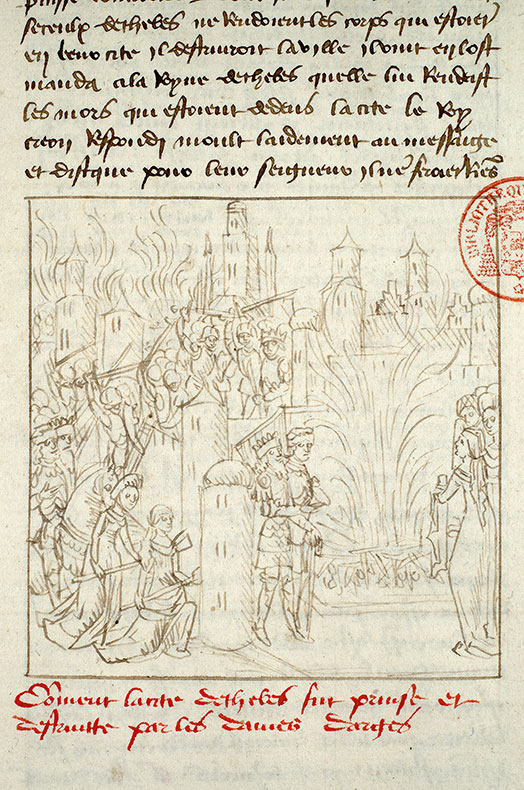 se ceulx de thebes ne Rendoient les corps qui estoiēt
en leur cite il destruiroit la ville il vint en lost
manda ala Royne de thebes quelle lui Rendist
les mors qui estoient dedens la cite le Roy
creon Respondi moult laidement au messaige
et dist que pour leur seigneur il nē feroit Riēs
BIBLIOTHEQUE
Cōment la cite de thebes fut prinse et
destruitte par les dames darges